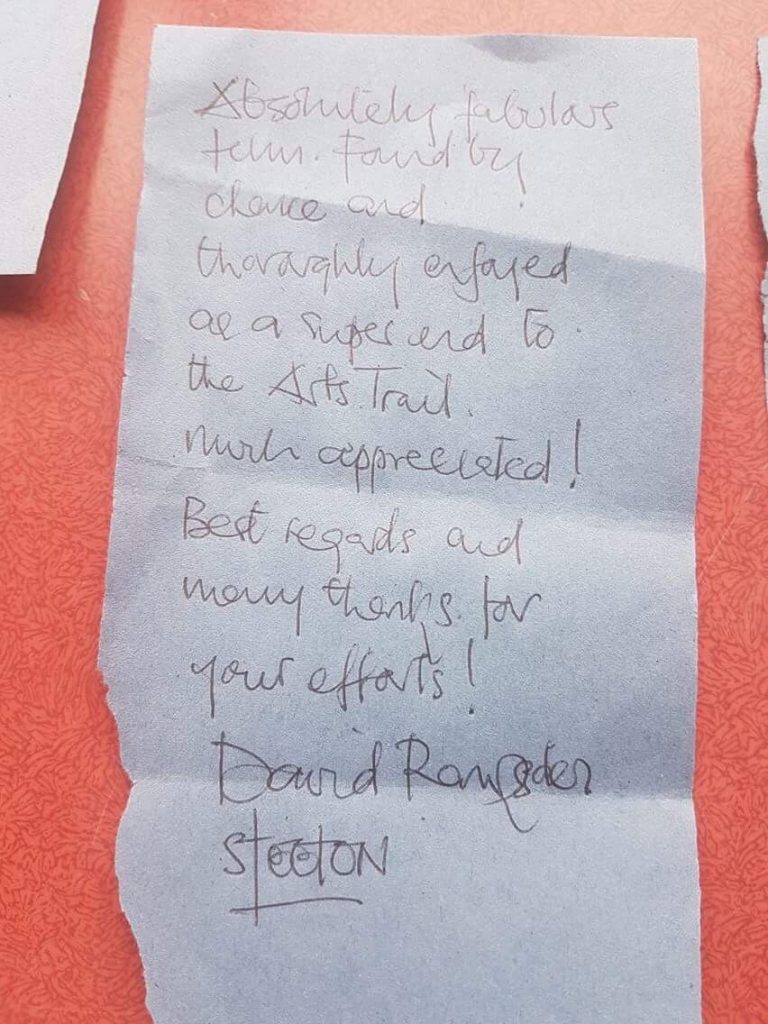 Absolutely fabulous
film. Found by
chance and
thoroughly enjoyed
as a super end to
the Arts Trail.
Much appreciated!
Best regards and
many thanks for
your efforts!
David Ramsden
STEETON